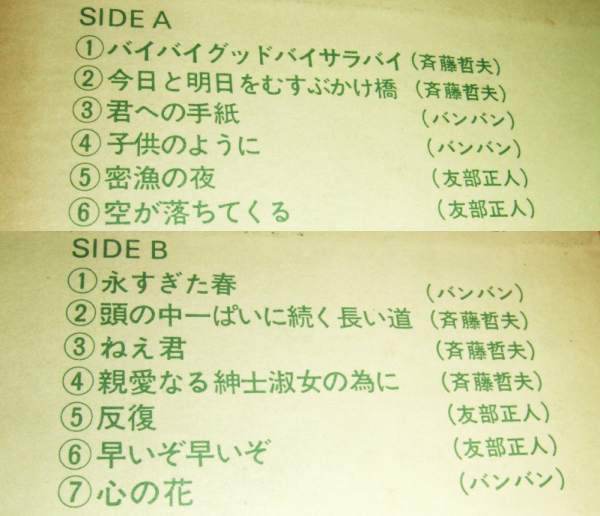 SIDE A
①バイバイグッドバイサラバイ(斉藤哲夫)
②今日と明日をむすぶかけ橋 (斉藤哲夫)
③君への手紙 (バンバン)
④子供のように (バンバン)
⑤密漁の夜 (友部正人)
⑥空が落ちてくる (友部正人)
SIDE B
①永すぎた春 (バンバン)
②頭の中一ぱいに続く長い道 (斉藤哲夫)
③ねえ君 (斉藤哲夫)
④親愛なる紳士淑女の為に (斉藤哲夫)
⑤反復 (友部正人)
⑥早いぞ早いぞ (友部正人)
⑦心の花 (バンバン)